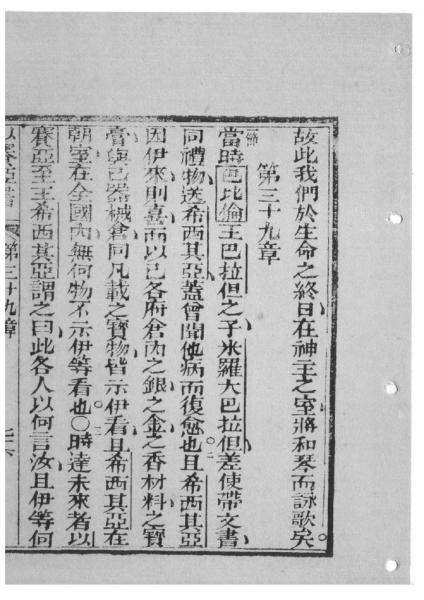 故此我們於生命之終日在神主之室將和琴而詠歌矣。
第三十九章
節一 當時巴比倫王巴拉但之子米羅大巴拉但差使帶文書
同禮物送希西其亞蓋曾聞他病而復愈也○二且希西其亞
因伊來則喜而以己各府倉內之銀之金之香材料之寶
膏與己器械倉同凡載之寶物皆示伊看且希西其亞在
朝室在全國內無何物不示伊等看也○三時達未來者以
賽亞至王希西其亞謂之曰此各人以何言汝且伊等何
以賽亞書 第三十九章